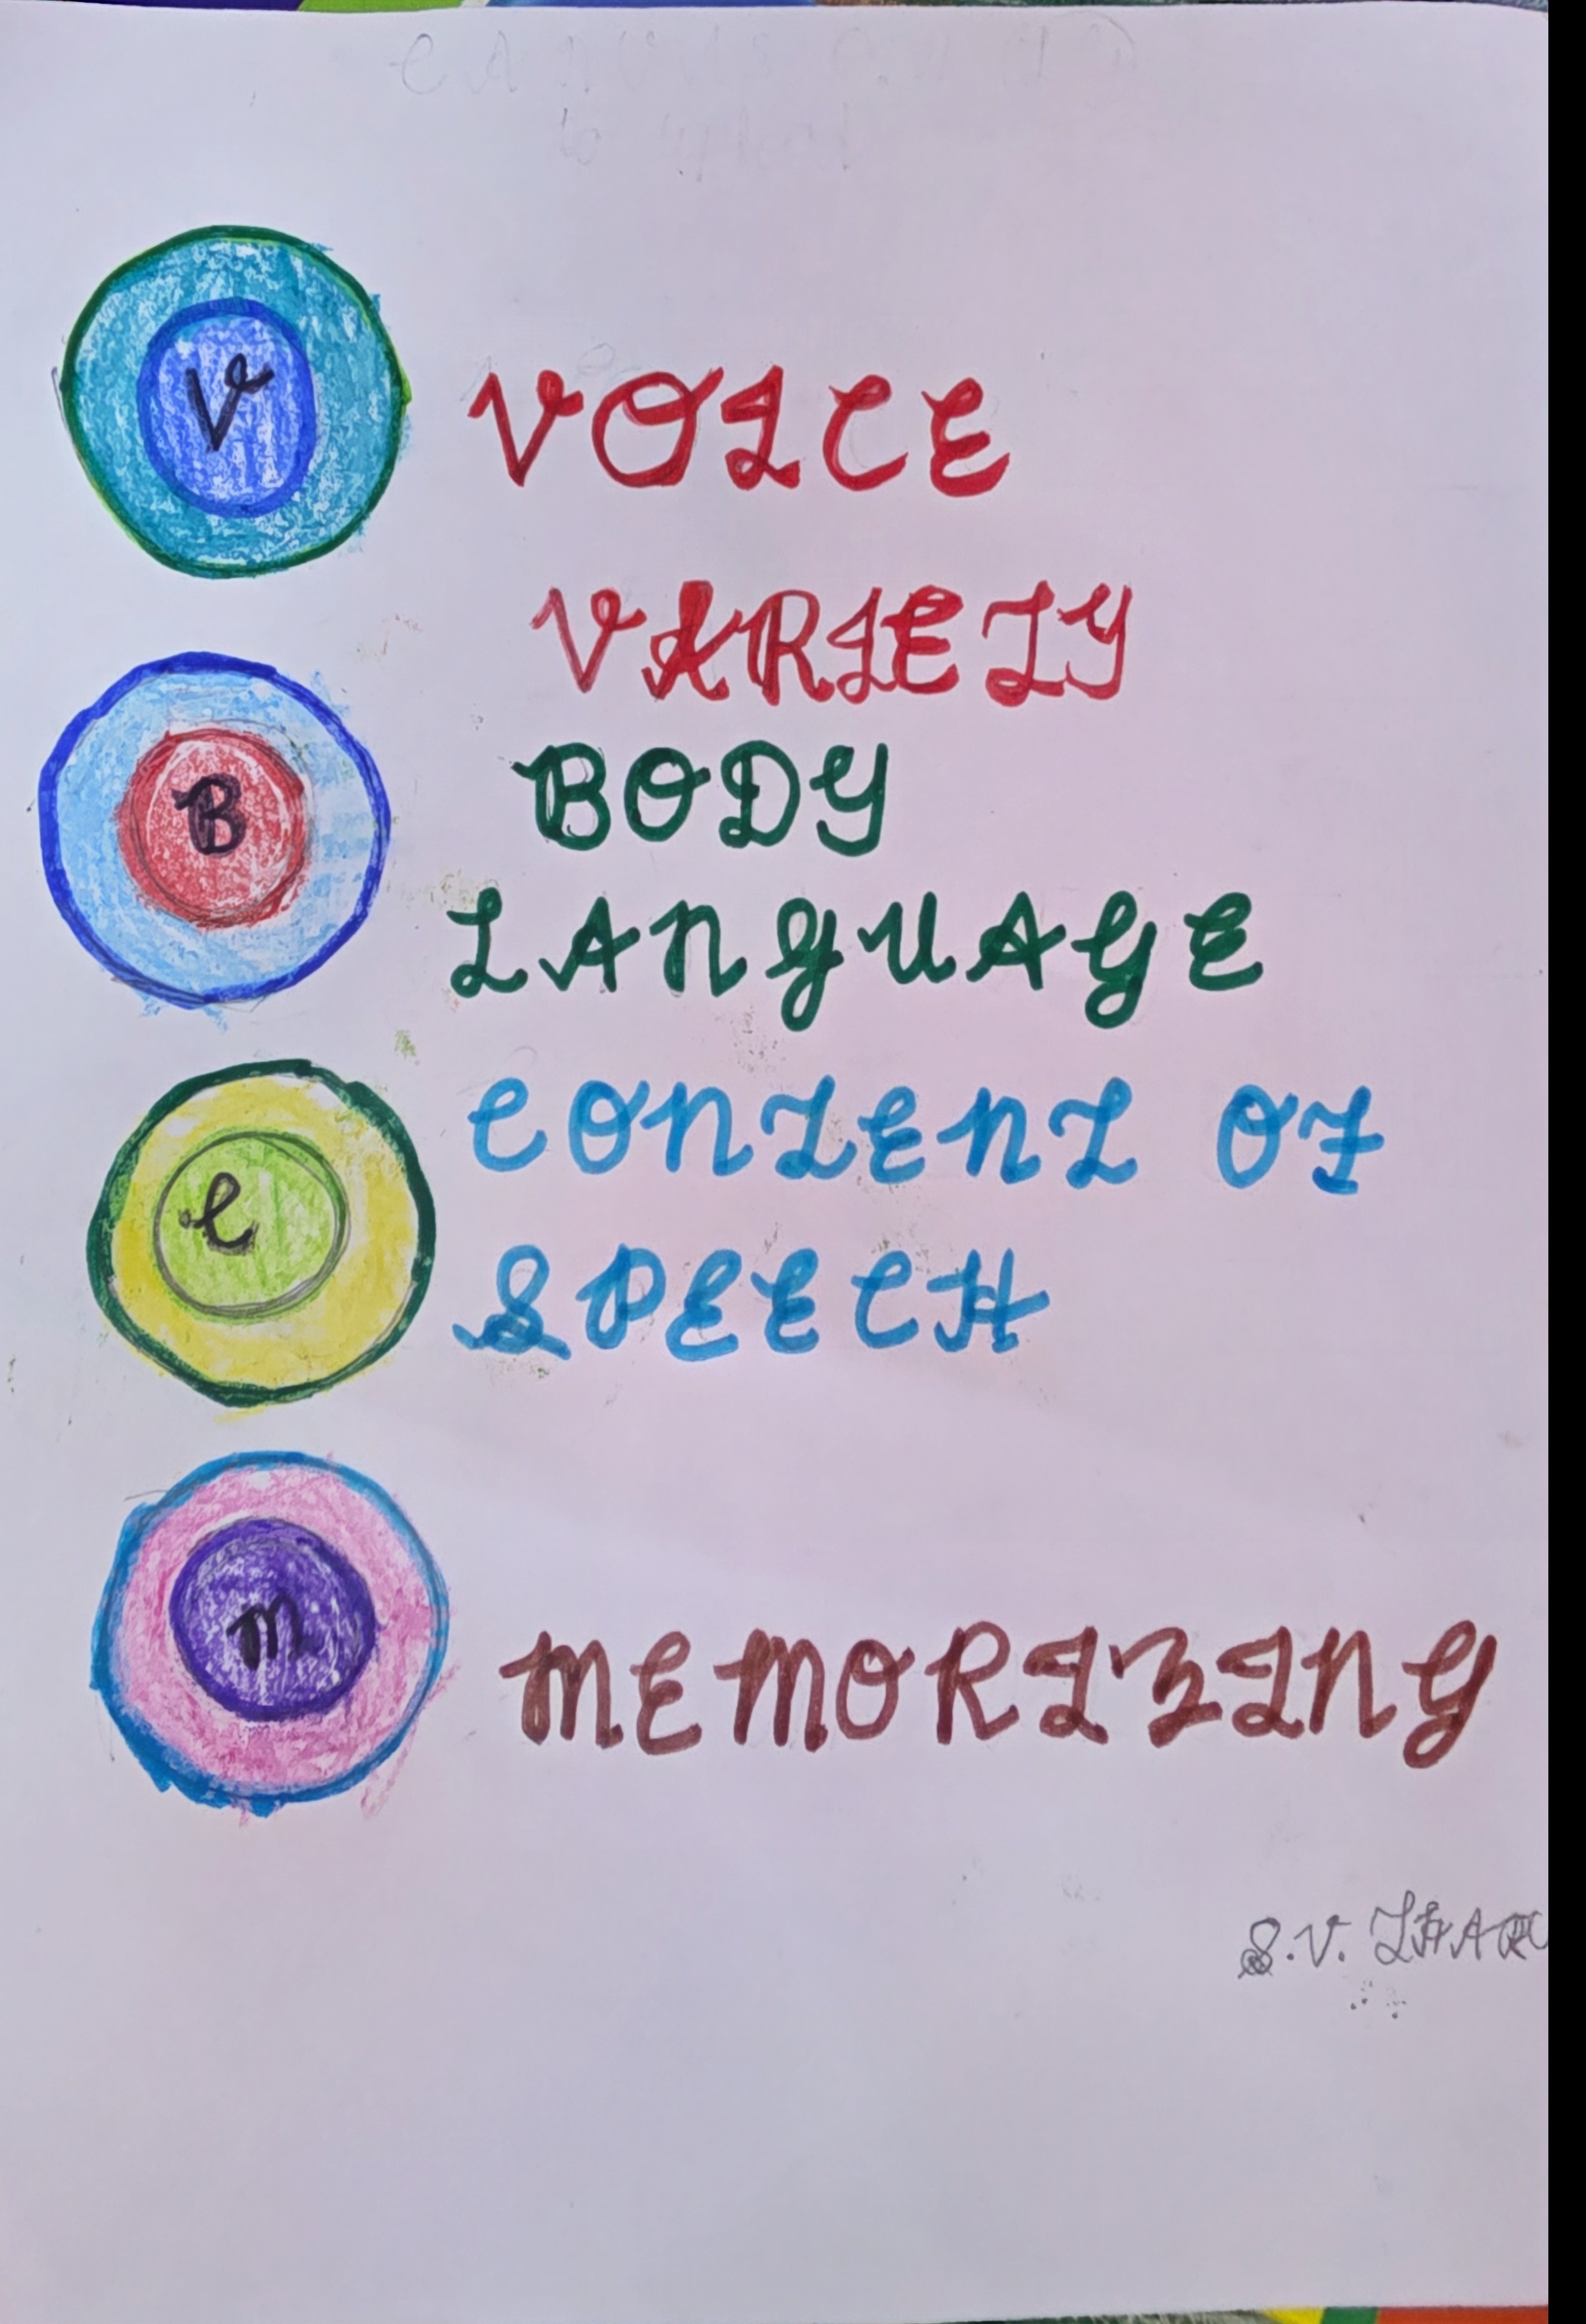 V
VOICE
VARIETY
B
BODY
LANGUAGE
C
CONTENT OF
SPEECH
M
MEMORIZING
S.V.